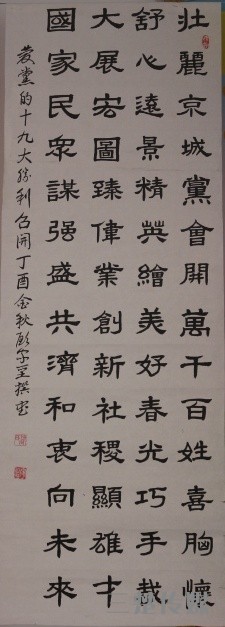 壯麗京城黨會開萬千百姓喜胸懷
舒心遠景精英繪美好春光巧手裁
大展宏圖臻偉業創新社稷顯雄才
國家民眾謀强盛共濟和衷向未來
慶黨的十九大勝利召開丁酉金秋